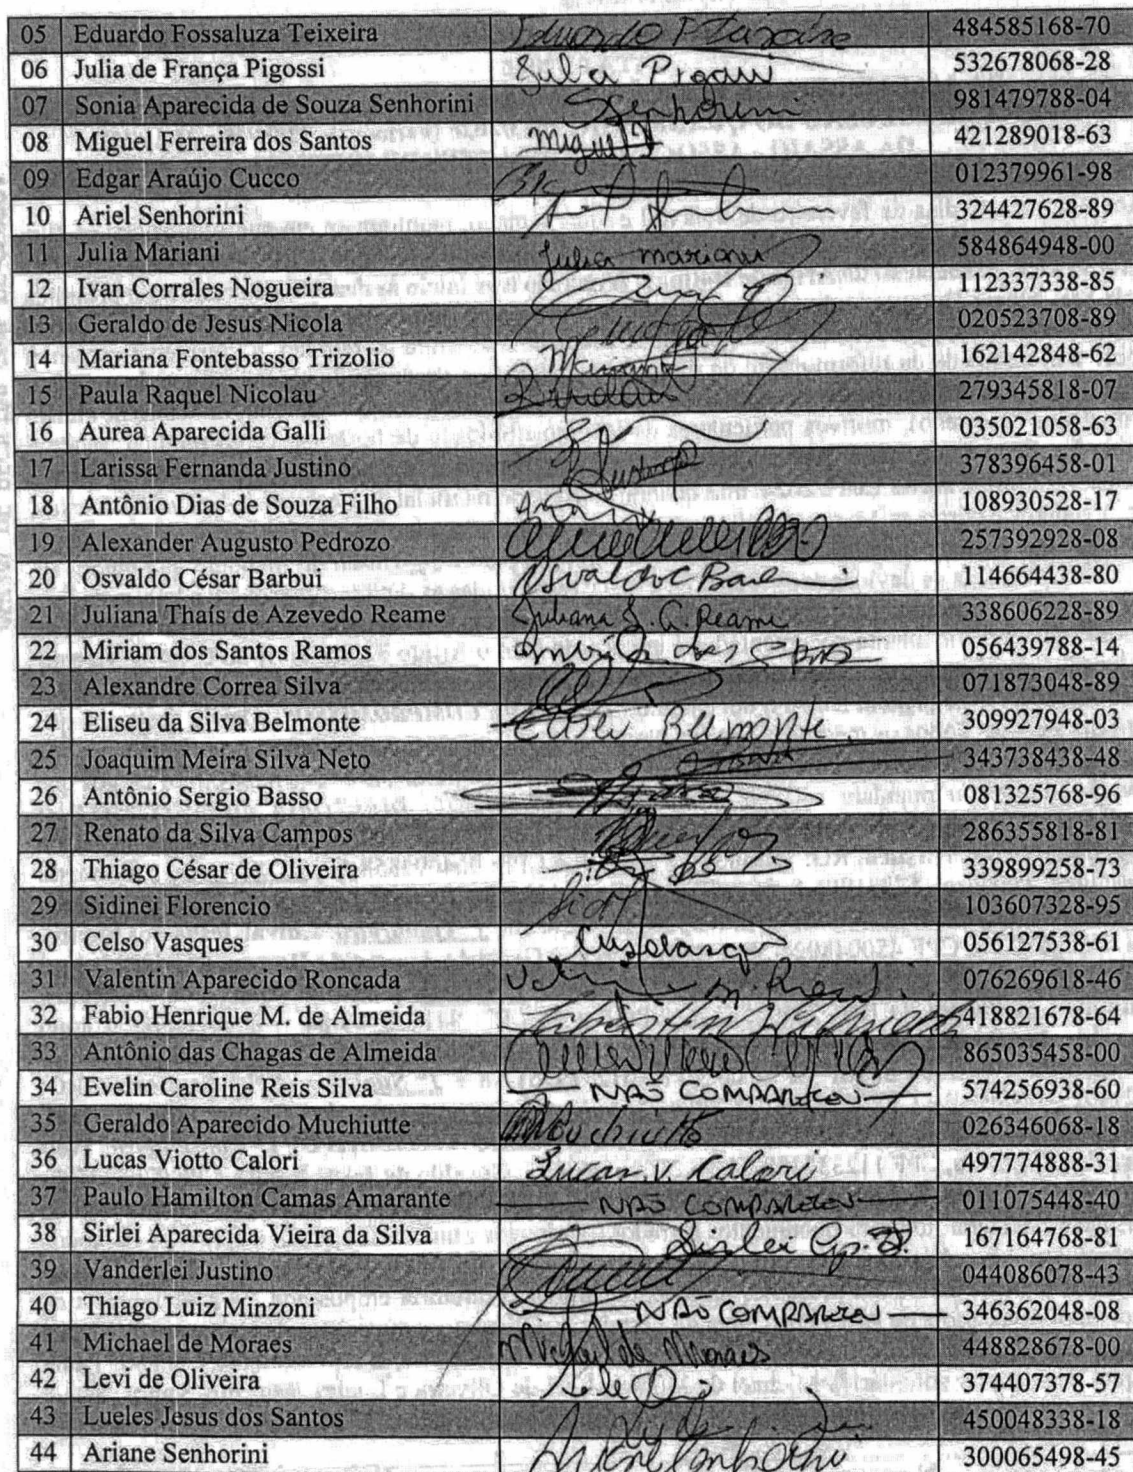 05 Eduardo Fossaluza Teixeira Eduardo F Teixeira 484585168-70
06 Julia de França Pigossi Julia Pigossi 532678068-28
07 Sonia Aparecida de Souza Senhorini SSenhorini 981479788-04
08 Miguel Ferreira dos Santos Miguel 421289018-63
09 Edgar Araújo Cucco 012379961-98
10 Ariel Senhorini 324427628-89
11 Julia Mariani Julia Mariani 584864948-00
12 Ivan Corrales Nogueira 112337338-85
13 Geraldo de Jesus Nicola 020523708-89
14 Mariana Fontebasso Trizolio Mariana 162142848-62
15 Paula Raquel Nicolau 279345818-07
16 Aurea Aparecida Galli 035021058-63
17 Larissa Fernanda Justino Justino 378396458-01
18 Antônio Dias de Souza Filho 108930528-17
19 Alexander Augusto Pedrozo 257392928-08
20 Osvaldo César Barbui Osvaldo C 114664438-80
21 Juliana Thaís de Azevedo Reame Juliana T. A. Reame 338606228-89
22 Miriam dos Santos Ramos 056439788-14
23 Alexandre Correa Silva 071873048-89
24 Eliseu da Silva Belmonte Eliseu Belmonte 309927948-03
25 Joaquim Meira Silva Neto 343738438-48
26 Antônio Sergio Basso 081325768-96
27 Renato da Silva Campos 286355818-81
28 Thiago César de Oliveira 339899258-73
29 Sidinei Florencio Sid 103607328-95
30 Celso Vasques 056127538-61
31 Valentin Aparecido Roncada 076269618-46
32 Fabio Henrique M. de Almeida 418821678-64
33 Antônio das Chagas de Almeida 865035458-00
34 Evelin Caroline Reis Silva NÃO COMPARECEU 574256938-60
35 Geraldo Aparecido Muchiutte Muchiutte 026346068-18
36 Lucas Viotto Calori Lucas V. Calori 497774888-31
37 Paulo Hamilton Camas Amarante NÃO COMPARECEU 011075448-40
38 Sirlei Aparecida Vieira da Silva Sirlei Ap. 167164768-81
39 Vanderlei Justino 044086078-43
40 Thiago Luiz Minzoni NÃO COMPARECEU 346362048-08
41 Michael de Moraes Michael de Moraes 448828678-00
42 Levi de Oliveira 374407378-57
43 Lueles Jesus dos Santos 450048338-18
44 Ariane Senhorini Ariane Senhorini 300065498-45